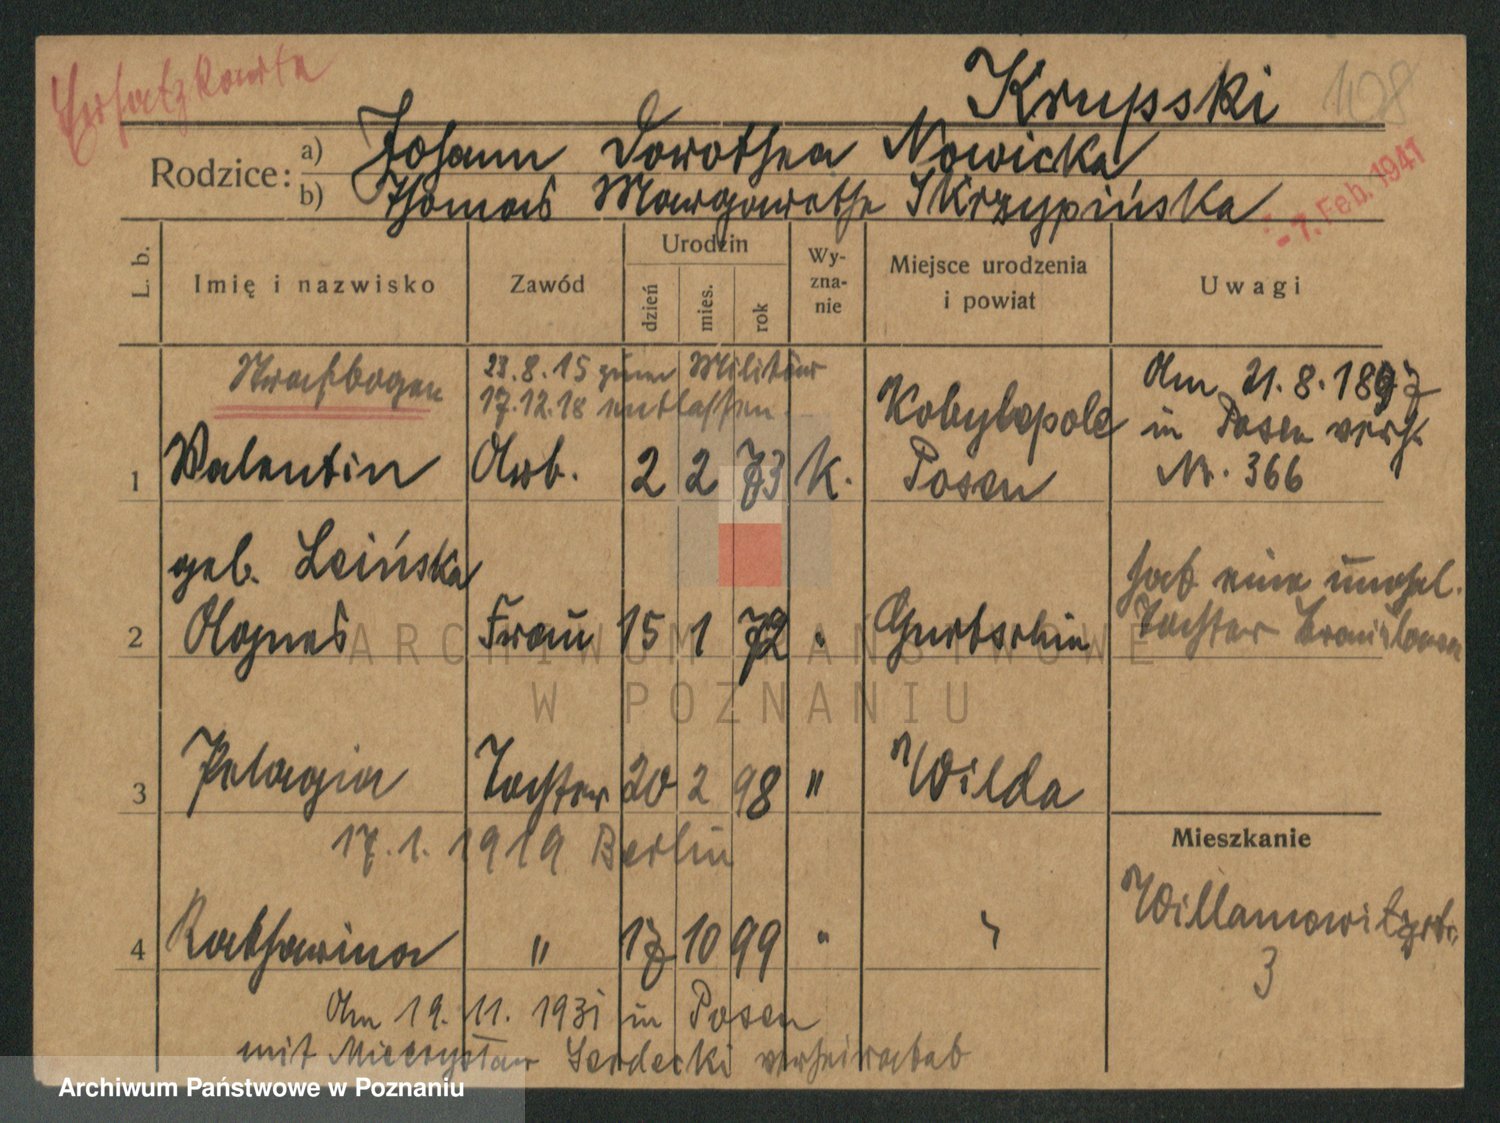 Ersatzkarte
Krupski
108
Rodzice: a) Johann Dorothea Nowicka
b) Thomas Margarethe Skrzypińska
- 7. Feb. 1941
L. b. Imię i nazwisko Zawód Urodzin dzień mies. rok Wy-zna-nie Miejsce urodzenia i powiat Uwagi
Strafbogen
23.8.15 zum Militär
17.12.18 entlassen
1 Valentin Arb. 2 2 73 K. Kobylepole Posen
Am 21.8.1897
in Posen verh.
Nr. 366
geb. Leińska
2 Agnes Frau 15 1 72 " Gurtschin
hat eine unehel.
Tochter Bronislawa
3 Pelagia Tochter 20 2 98 " Wilda
17.1.1919 Berlin
Mieszkanie
Willamowitzstr.
3
4 Katharina " 17 10 99 " "
Am 19.11.1931 in Posen
mit Mieczysław Serdecki verheiratet
ARCHIWUM PAŃSTWOWE
W POZNANIU
Archiwum Państwowe w Poznaniu